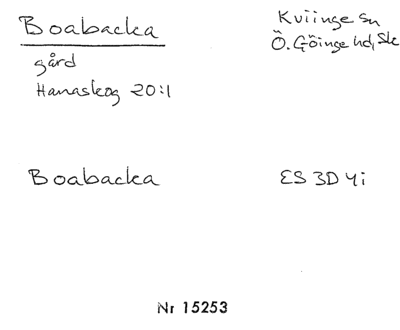 Boabacka
Kviinge sn
Ö. Göinge hd, Sk
gård
Hanaskog 20:1
Boabacka
ES 3D 4i
Nr 15253